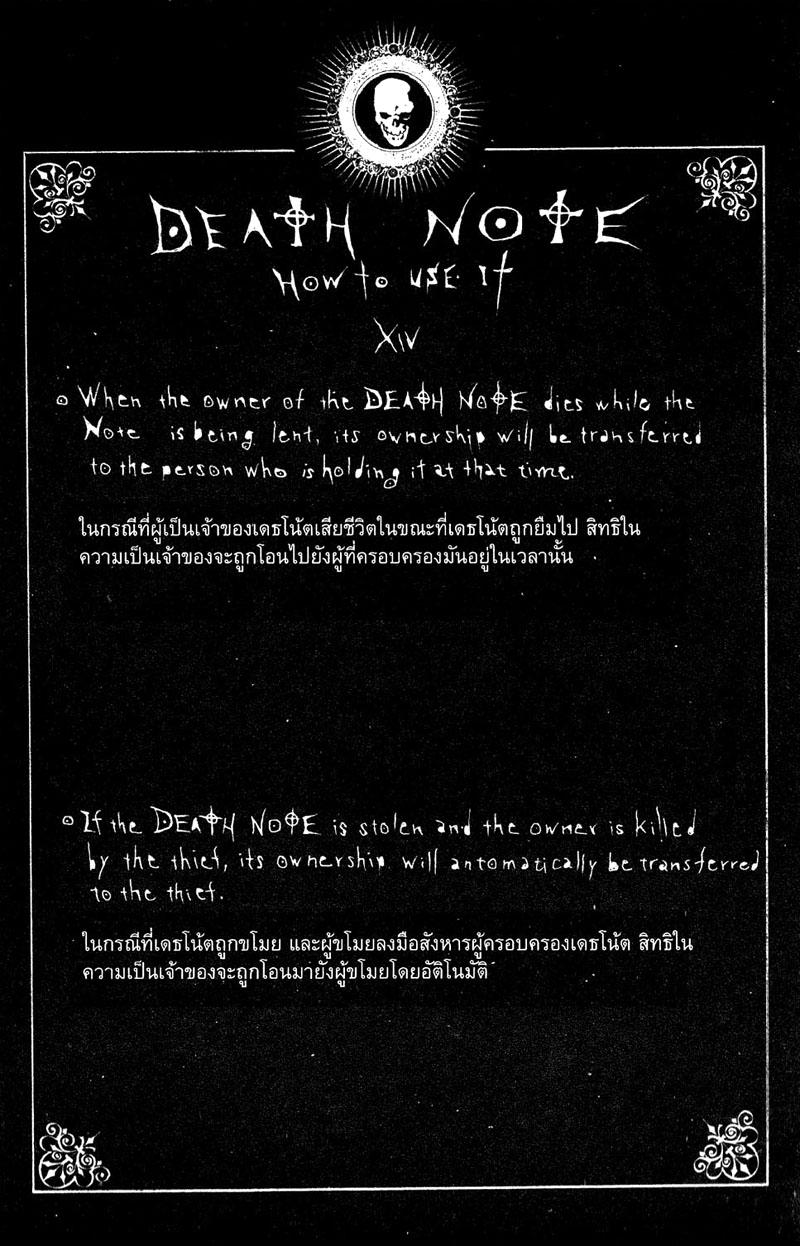 DEATH NOTE
HOW TO USE IT
XIV
When the owner of the DEATH NOTE dies while the
Note is being lent, its ownership will be transferred
to the person who is holding it at that time.
ในกรณีที่ผู้เป็นเจ้าของเดธโน้ตเสียชีวิตในขณะที่เดธโน้ตถูกยืมไป สิทธิใน
ความเป็นเจ้าของจะถูกโอนไปยังผู้ที่ครอบครองมันอยู่ในเวลานั้น
If the DEATH NOTE is stolen and the owner is killed
by the thief, its ownership will automatically be transferred
to the thief.
ในกรณีที่เดธโน้ตถูกขโมย และผู้ขโมยลงมือสังหารผู้ครอบครองเดธโน้ต สิทธิใน
ความเป็นเจ้าของจะถูกโอนมายังผู้ขโมยโดยอัติโนมัติ